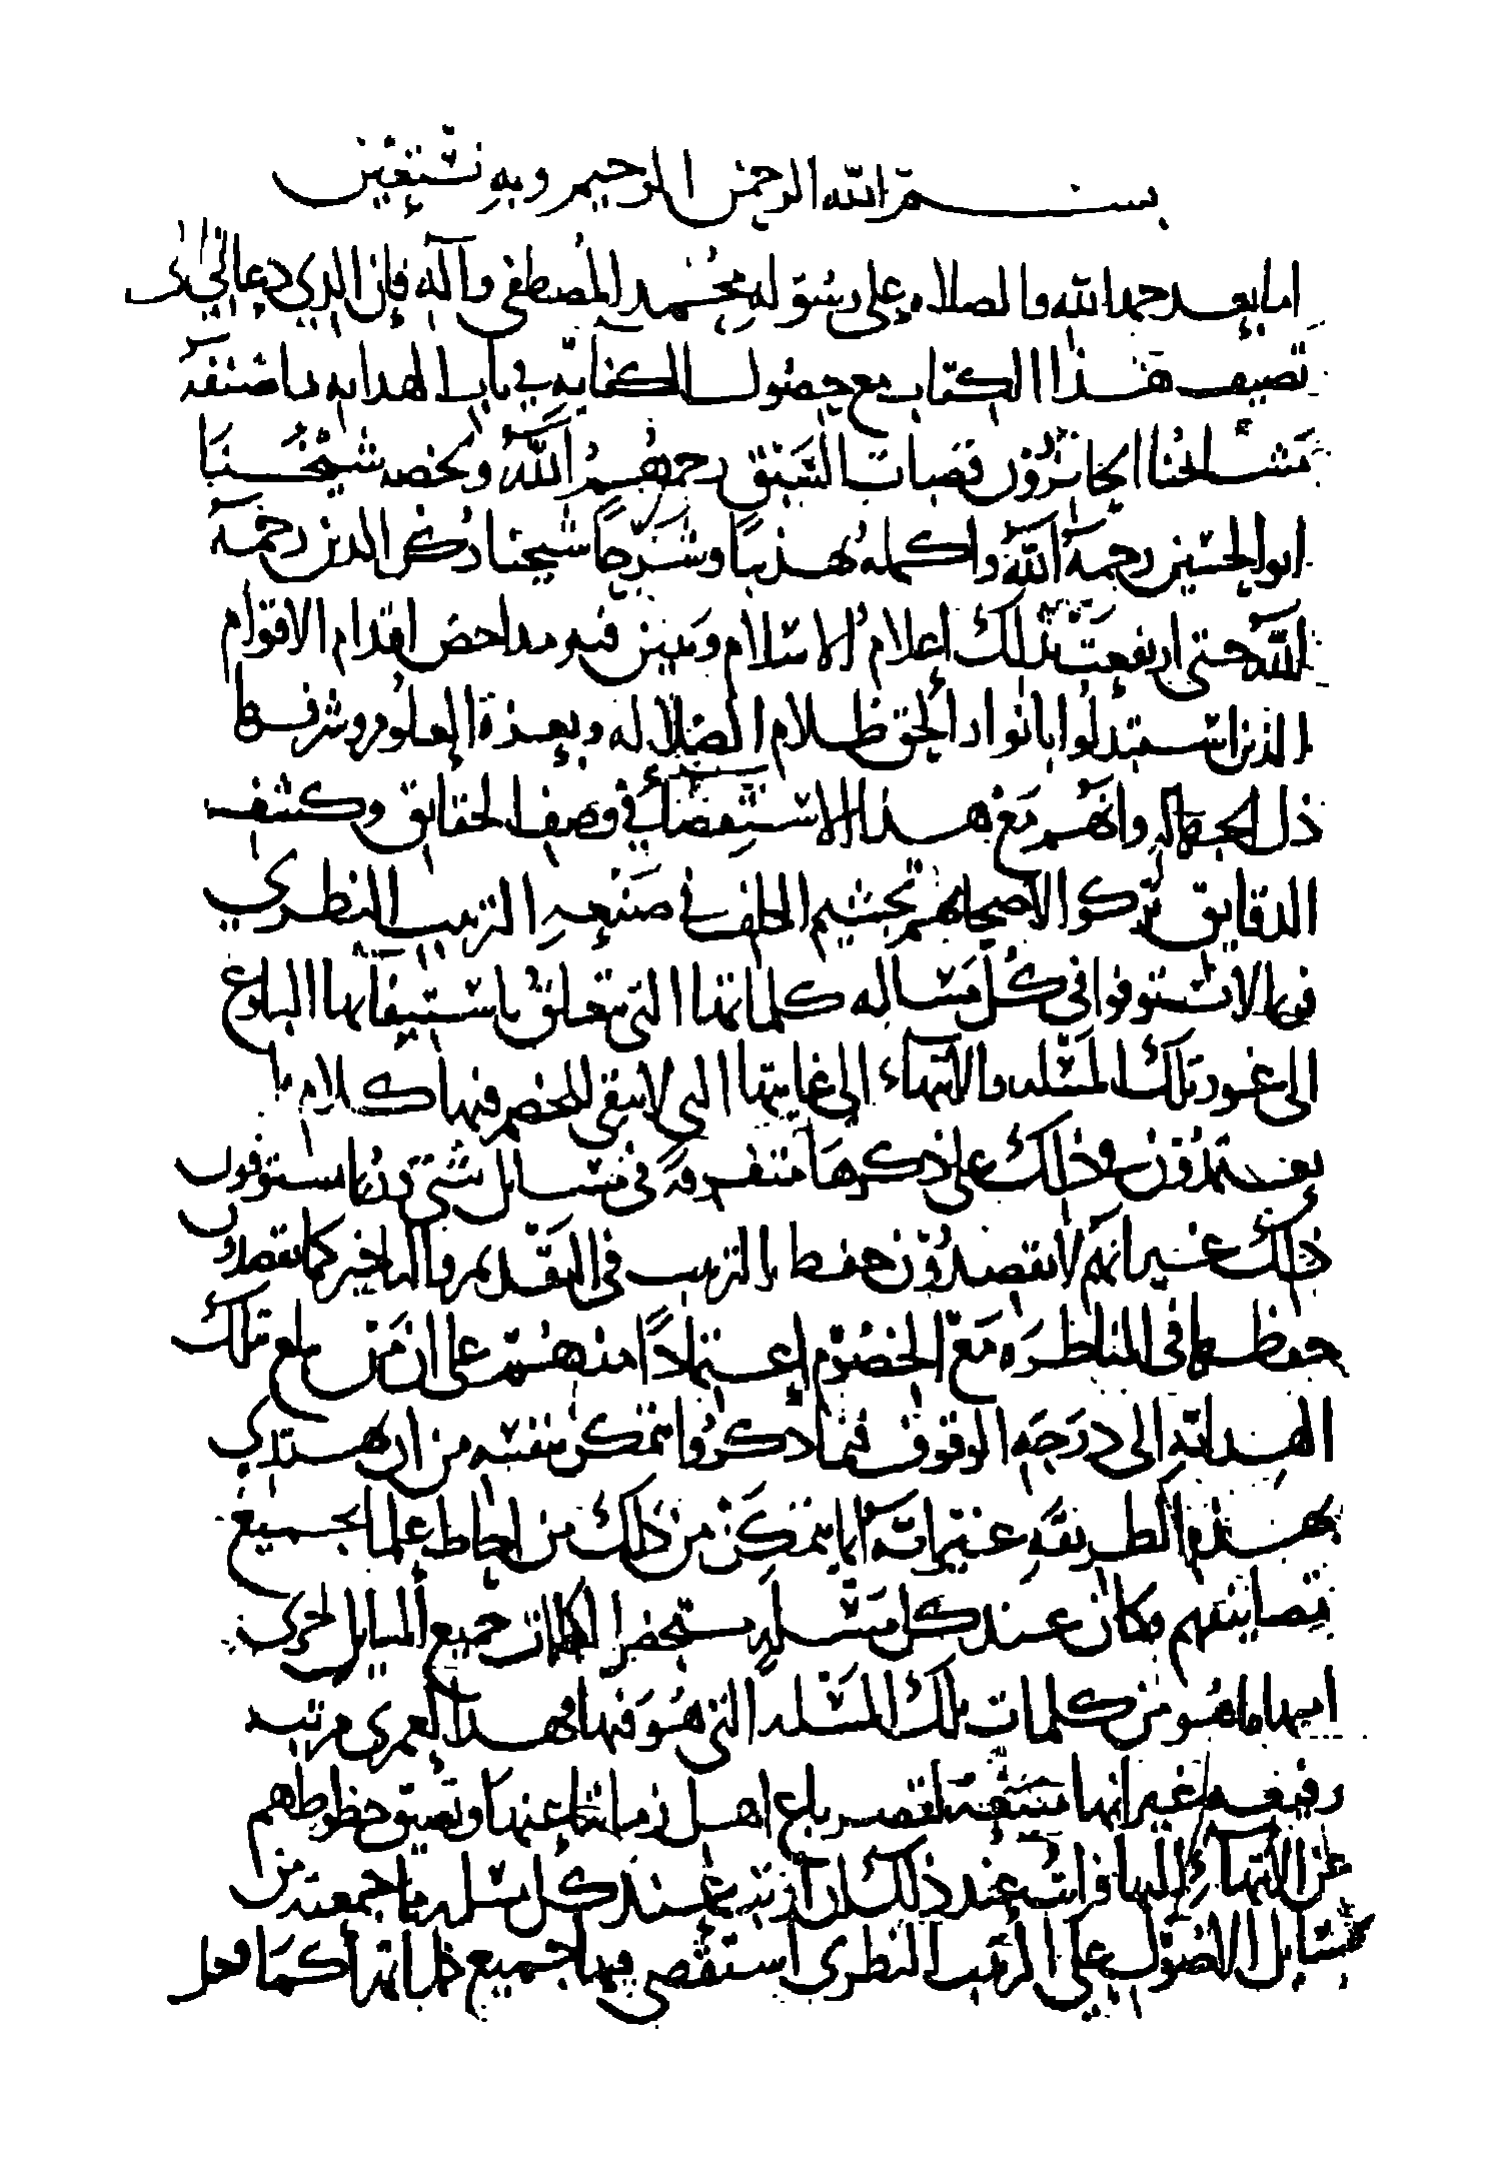 بسم الله الرحمن الرحيم وبه نستعين
اما بعد حمد الله والصلاه على رسوله محمد المصطفى وآله فإن الذي دعاني الى
تصنيف هذا الكتاب مع حصول الكفايه في باب الهدايه بما صنفه
مشايخنا الحائزون قصبات السبق رحمهم الله ولخصه شيخنا
ابو الحسين رحمه الله واكمله تهذيبا وشرحا شيخنا ركن الدين رحمه
الله حتى ارتفعت بذلك اعلام الاسلام وتبين فيه مداحض اقدام الاقوام
الذين استبدلوا بانوار الحق ظلام الضلاله وبعزة العلوم وشرفها
ذل الجهاله وانهم مع هذا الاستقصاء في وصف الحقايق وكشف
الدقايق تركوا لاصحابهم تجشيم الكلف في صنعه الترتيب النظري
فربما لا يستوفوا في كل مساله كلماتها التي تتعلق باستيفائها البلوغ
الى غور تلك المسئله والانتهاء الى غايتها التي لا يبقى للخصم فيها كلام بل
يعتمدون في ذلك على ذكرها متفرقة في مسايل شتى وربما يستوفون
ذلك غير انهم لا يقصدون حفظ الترتيب في التقديم والتاخير كما يقصدون
حفظها في المناظره مع الخصوم اعتمادا منهم على ان من بلغ تلك
الهدايه الى درجه الوقوف فيما ذكروا يتمكن بنفسه من ان يهتدي
بهذه الطريقه غير انه انما يتمكن من ذلك من احاط علما بجميع
تصانيفهم وكان عند كل مسئله مستحضرا لكلمات جميع المسايل لتحري
ايها ما هو من كلمات تلك المسئله التي هو فيها فهذا لعمري مرتبه
رفيعه غير انها متعبة لقصر باع اهل زماننا عنها وتضيق حظوظهم
عن الانتهاء اليها فرايت عند ذلك ان ازيد عند كل مسئله ما جمعته من
مسايل الاصول على الترتيب النظري استقصى فيها جميع كلماتها كما فعل